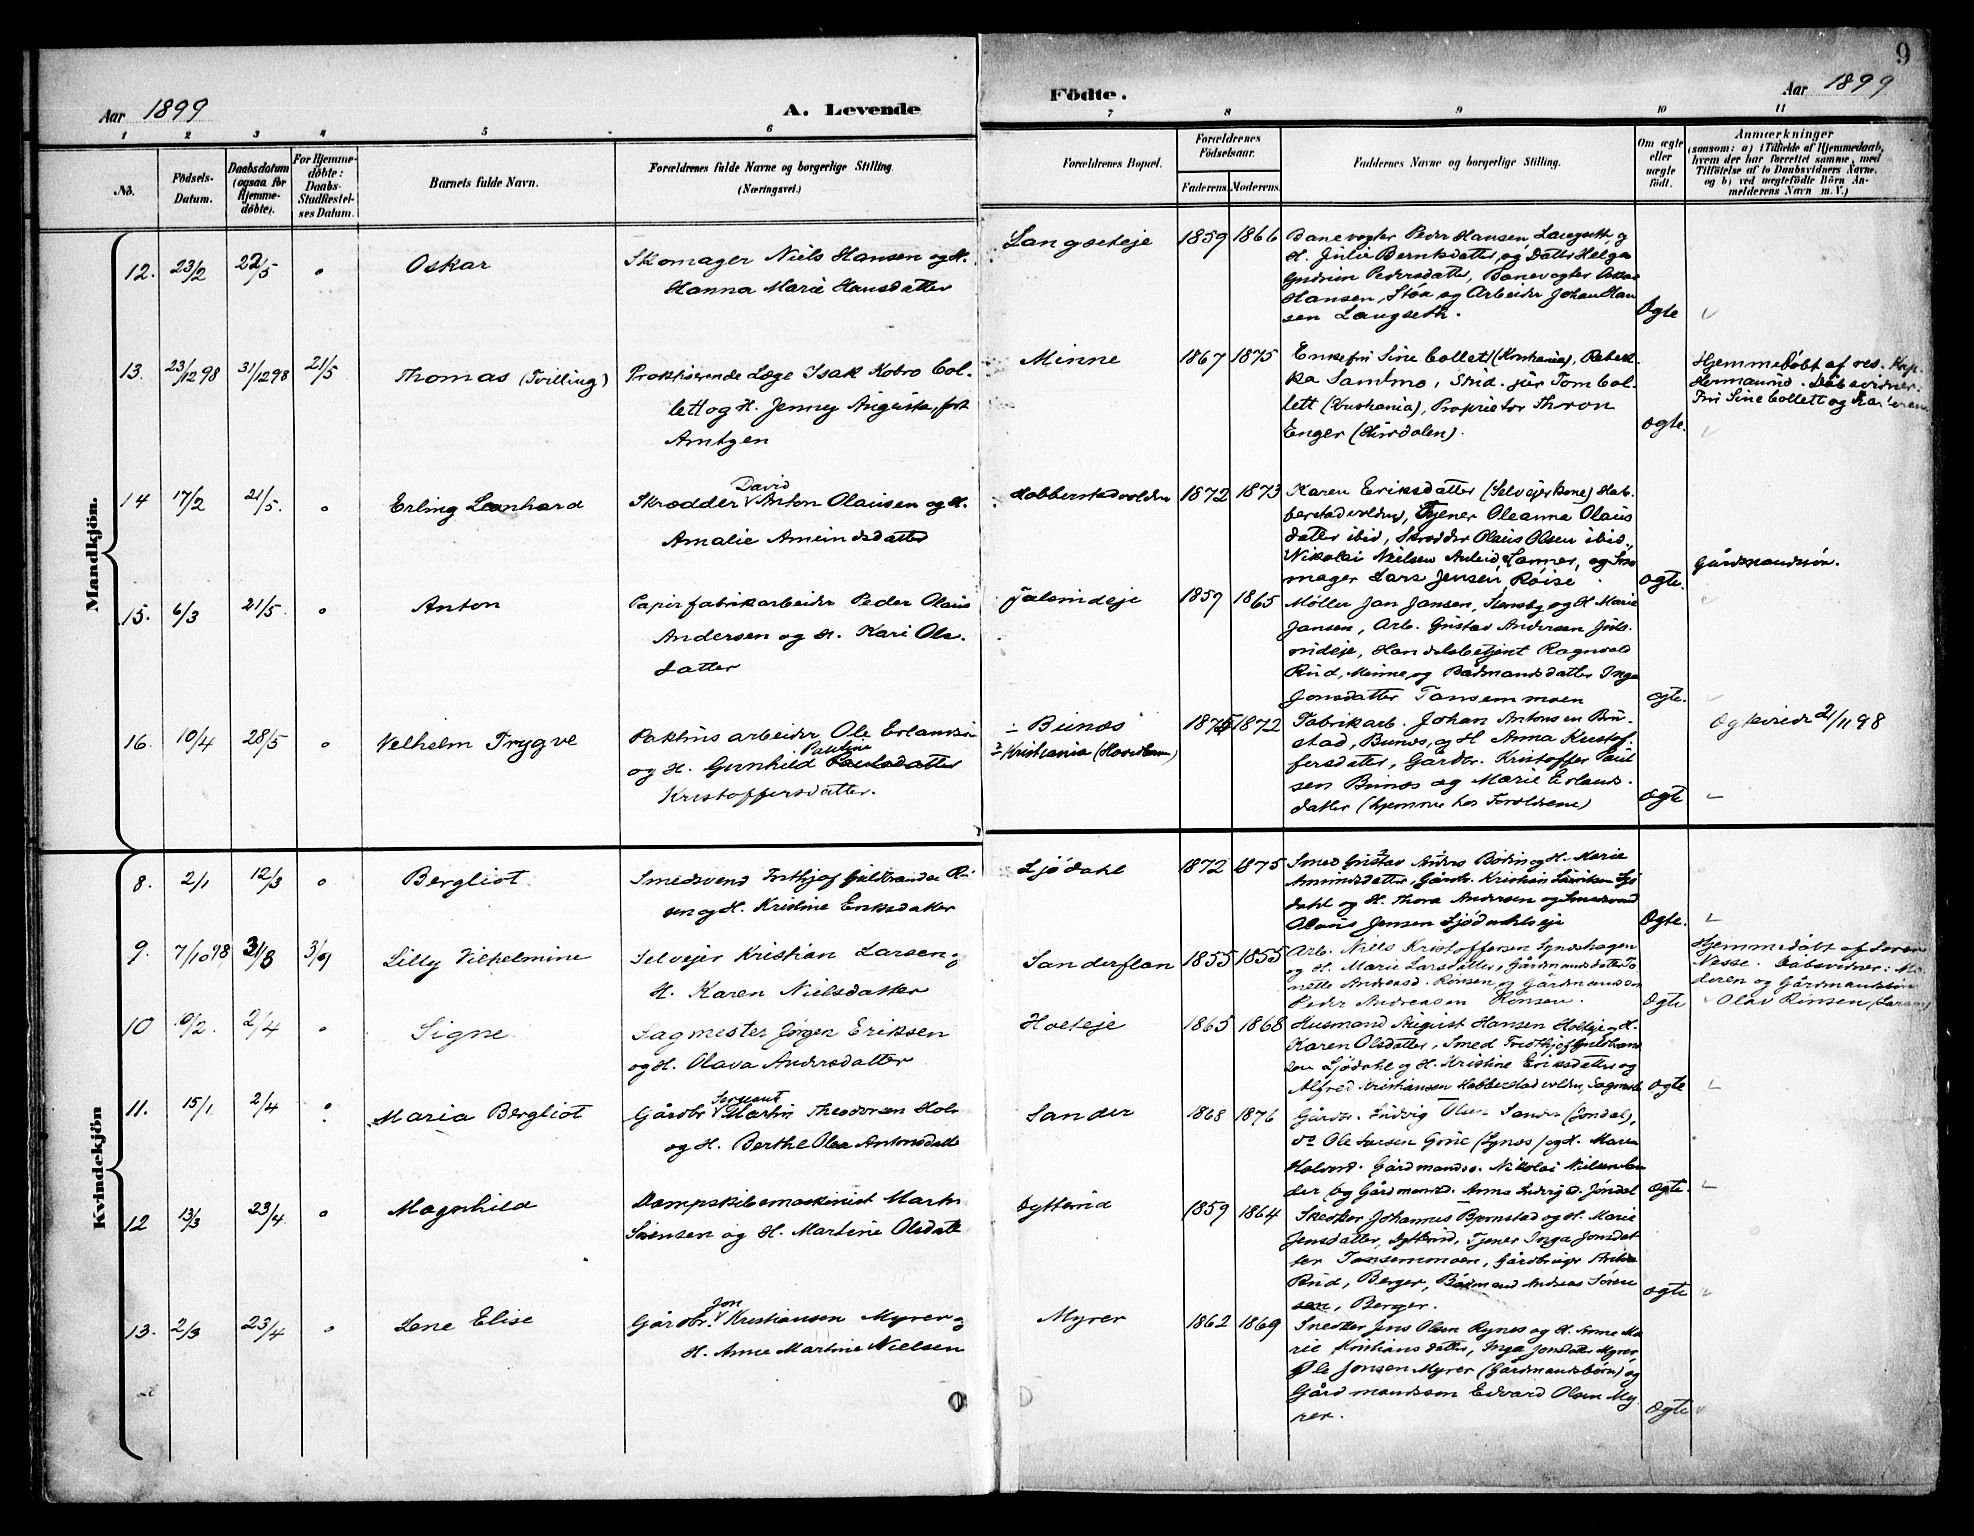 9
Aar 1899
A. Levende
Födte.
Aar 1899
1 2 3 4 5 6 7 8 9 10 11
No.
Födsels-
Datum.
Daabsdatum
(ogsaa for
Hjemme-
döbte).
For Hjemme-
döbte:
Daabs-
Stadfæstel-
ses Datum.
Barnets fulde Navn.
Forældrenes fulde Navne og borgerlige Stilling.
(Næringsvei.)
Forældrenes Bopæl.
Forældrenes
Födselsaar.
Faderens. Moderens.
Faddernes Navne og borgerlige Stilling.
Om ægte
eller
uægte
födt.
Anmærkninger
(saasom: a) i Tilfælde af Hjemmedaab,
hvem der har forrettet samme, med
Tilföielse af to Daabsvidners Navne,
og b) ved uægtefödte Börn An-
melderens Navn m. V.)
Mandkjön.
12. 23/2 22/5 " Oskar
Skomager Niels Hansen og H.
Hanna Marie Hansdatter
Langseteje 1859 1866
Banevogter Peder Hansen Langseth og
H. Julie Berntsdatter, og Datter Helga
Gudrun Pedersdatter, Banevogter
Hansen, Stöa og Arbeider Johan Han
sen Langseth.
Ægte
13. 23/12 98 31/12 98 21/5 Thomas (Tvilling)
Praktiserende Læge Isak Kobro Col-
lett og H. Jenny Augusta, født
Arntzen
Minne 1867 1875
Enkefru Sine Collett (Kristiania), Rebek-
ka Samtmo, Stud. jur Tom Col-
lett (Kristiania), Proprietær Thron
Enger (Hurdalen).
ægte.
Hjemmedöbt af res. Kap.
Hermanrud. Döbsvidner:
Fru Sine Collett og Faderen
14 17/2 21/5. " Erling Leonhard
David
Skrædder Anton Olausen og H.
Amalie Amundsdatter
Habberstadvolden 1872 1873
Karen Eriksdatter (Selvejerkone) Hab-
berstadvolden, Tjener Oleanna Olaus
datter ibid, Skrædder Olaus Olsen ibid,
Nikolai Nielsen Sanner, og Sko
mager Lars Jensen Röise
ægte.
Gårdmandssön.
15. 6/3 21/5. " Anton
Papirfabrikarbeider Peder Olaus
Andersen og H. Kari Ols-
datter
1859 1865
Möller Jan Jansen, Stensby og H. Marie
Jansen, Arb. Gustav Andersen
Handelsbetjent Ragnvald
Rud, Minne, og Bådmandsdatter Inga
Jonsdatter Tansemmoen
ægte.
16. 10/4 28/5 " Velhelm Trygve
Pakhusarbeider Ole Erlandsen
Pauline
og H. Gunhild Paulsdatter
Kristoffersdatter.
Bunæs 1875 1872
Kristiania
Fabrikarb. Johan Antonsen Bru-
stad, Bunæs, og H. Anna Kristof-
fersdatter, Gårdbr. Kristoffer Paul
sen Bunæs og Marie Erlands-
datter (hjemme hos Forældrene)
ægte
Ægteviede 2/11 98
Kvindekjön
8. 2/1 12/3 " Bergliot
Smedsvend Fritjof Guldbrandsen
og H. Kristine Eriksdatter
Ljödahl 1872 1875
Smed Gustav Anders Bodin og H. Marie
Amundsdatter, Gårdbr. Kristian Ljö
dahl og H. Thora Andersen og Smedsvend
Olaus Jensen Ljödahlseje
Ægte.
9. 7/10 98 3/9 Lilly Vilhelmine
Selvejer Kristian Larsen og
H. Karen Nielsdatter
Sanderflan 1855 1855
Arb. Niels Kristoffersen
og H. Marie Larsdatter, Gårdmandsdatter To
nette Andreasd. Rönsen og Gårdmandssön
Peder Andreasen Rönsen.
Ægte
Hjemmedöbt af Soren
Nesse. Döbsvidner: Mo
deren og Gårdmandssön
Olav Rönsen (Larsen)
10 6/2. 2/4 " Signe
Sagmester Jörgen Eriksen
og H. Olava Andersdatter
Holteje 1865 1868
Husmand August Hansen Holteje og H.
Karen Olsdatter, Smed Fridthjof Guldbrand
sen Ljödahl og H. Kristine Eriksdatter og
Alfred Kristiansen Habberstadvolden, Sagmester
ægte
11. 15/1 2/4 " Maria Bergliot
Sergeant
Gårdbr Martin Theodorsen Hol-
og H. Berthe Olea Antonsdatte
Sander 1868 1876
Gårdbr. Ludvig Olsen Sander (Jöndal),
do Ole Larsen og H. Maren
Halvord. Gårdmandss. Nikolai Nielsen San
der og Gårdmansd. Anna Ludvigsd. Jöndal
ægte.
12 13/3 23/4. " Magnhild
Dampskibsmaskinist Martin
Sörensen og H. Martine Olsdatte
Dytterud 1859 1864
Snedker Johannes Bjørnstad og H. Marie
Jensdatter, Dytterud, Tjener Inga Jonsdat
ter Tansemmoen, Gårdbruger
Rud, Berger, Bådmand Andreas Sören
sen, Berger.
ægte
13. 2/3 23/4 " Lene Elise
Jon
Gårdbr. Kristiansen Myrer og
H. Anne Martine Nielsen
Myrer 1862 1869
Snedker Jens Olsen Rynes og H. Anne Ma
rie Kristiansdatter, Inga Jonsdatter Myrer,
Ole Jonsen Myrer (Gårdmandsbörn) og
Gårdmandssön Edvard Olsen My
rer.
Ægte